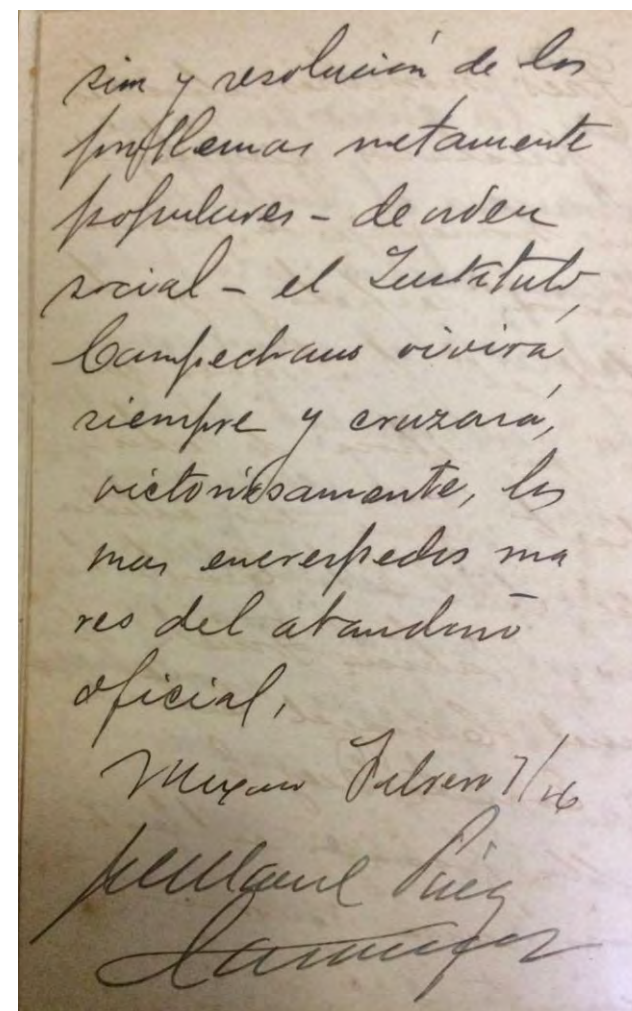 sion y resolución de los
problemas netamente
populares - de orden
social - el Instituto
Campechano vivirá
siempre y cruzará,
victoriosamente, los
mas encrespados ma
res del abandono
oficial,
Mexico Febrero 7/26
J M Puig
Casauranc